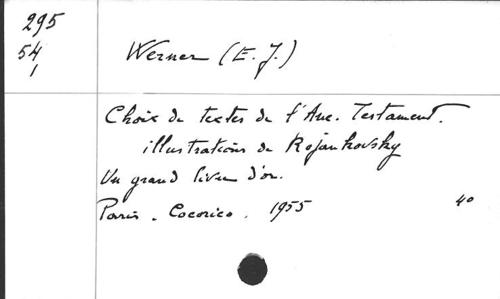 295
54
1
Werner (E. J.)
Choix de textes de l'Anc. Testament.
illustrations de Rojankovsky
Un grand livre d'or.
Paris - Cocorico. 1955 40